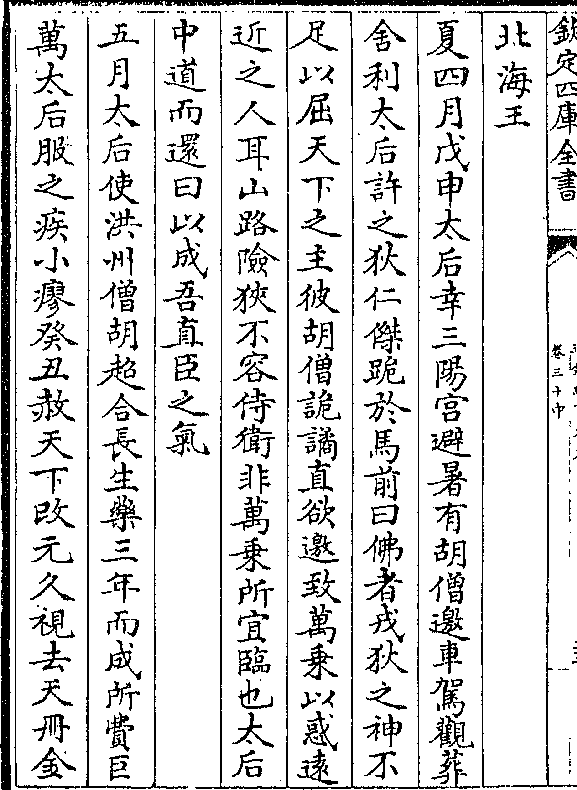 欽定四庫全書
卷三十中
北海王
夏四月戊申太后幸三陽宫避暑有胡僧邀車駕觀葬
舍利太后許之狄仁傑跪於馬前曰佛者戎狄之神不
足以屈天下之主彼胡僧詭譎直欲邀致萬乗以惑逺
近之人耳山路險狹不容侍衛非萬乗所宜臨也太后
中道而還曰以成吾直臣之氣
五月太后使洪州僧胡超合長生藥三年而成所費巨
萬太后服之疾小瘳癸丑赦天下改元久視去天冊金